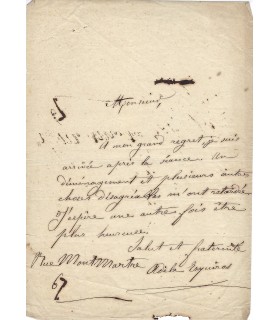 Monsieur,
A mon grand regret je suis
arrivée après la séance. Un
déménagement et plusieurs autres
choses désagréables m'ont retardée
J'espère une autre fois être
plus heureuse.
Salut et fraternité
Rue Montmartre Adèle
67